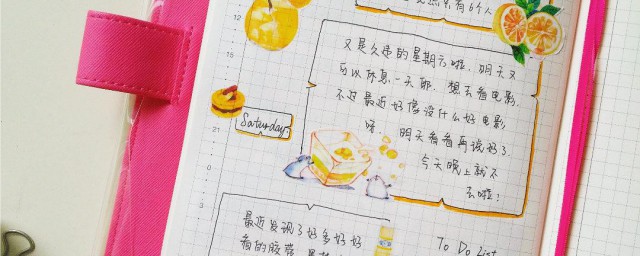 有6个人
12
又是久违的星期六啦. 明天又
可以休息一天耶. 想去看电影.
不过最近好像没什么好电影
呀. 明天看看再说好了.
今天晚上就不
去啦!
Saturday.
21
0
3
最近发现了好多好好
看的胶带.
To Do List